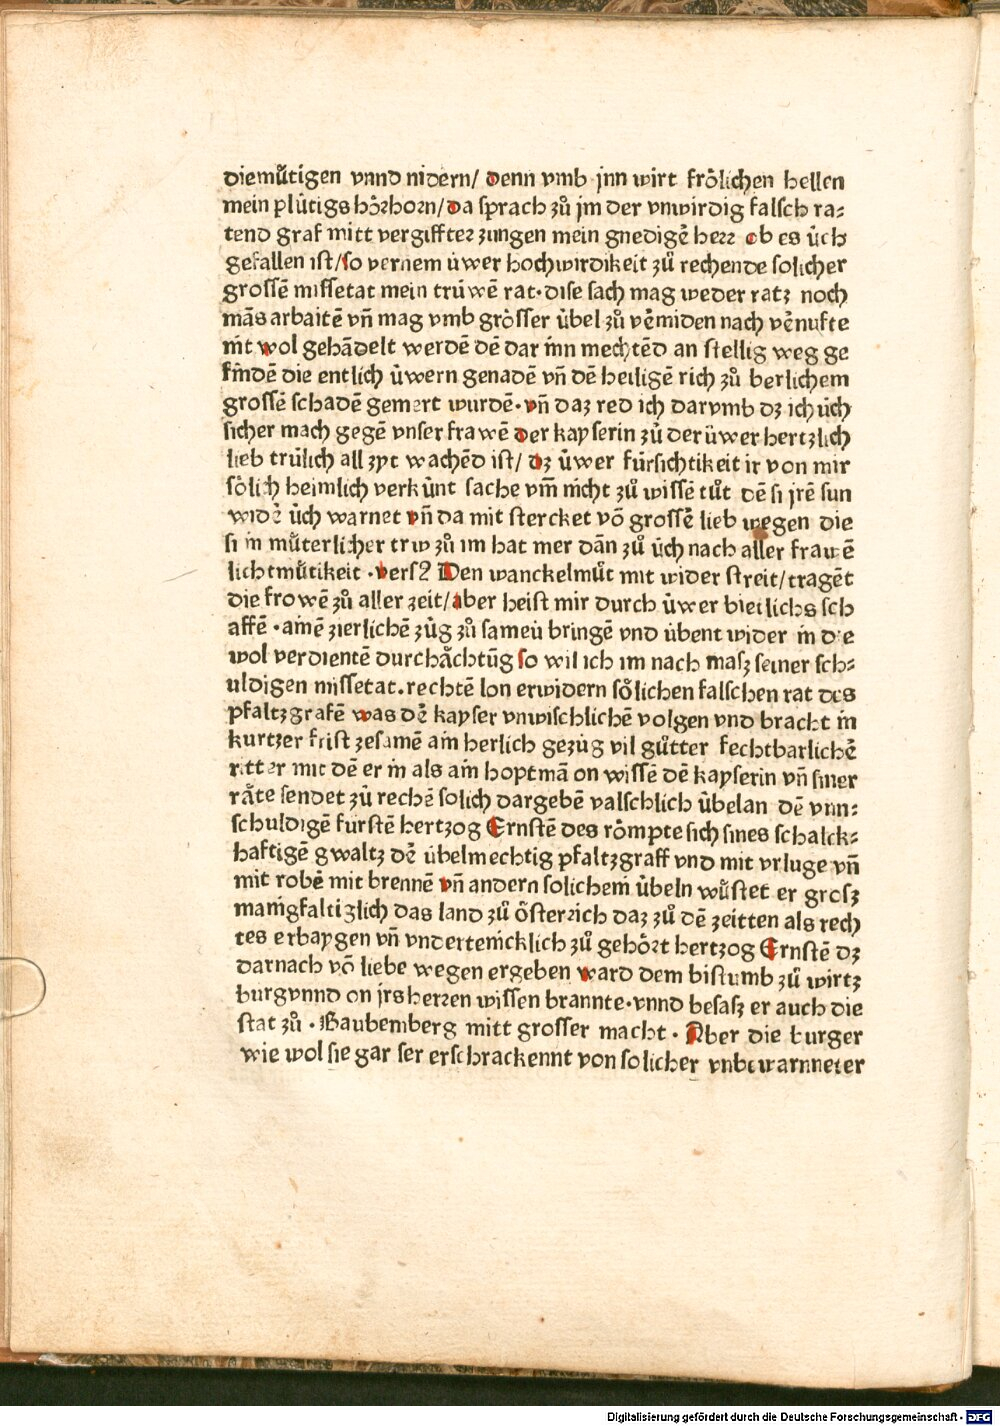 diemůtigen vnnd nidern/ denn vmb jnn wirt frölichen hellen
mein plůtigs hörhorn/da sprach zů jm der vnwirdig falsch ra⸗
tend graf mitt vergiffter zungen mein gnedigē herr ob es üch
gefallen ist/so vernem üwer hochwirdikeit zů rechende solicher
grossē missetat mein trüwē rat·dise sach mag weder ratz noch
mās arbaitē vn̄ mag vmb grösser übel zů vēmiden nach vēnufte
nit wol gehādelt werdē dē dar inn mechtēd an stellig weg ge
findē die entlich üwern genadē vn̄ dē heiligē rich zů herlichem
grossē schadē gemert wurdē·vn̄ daz red ich darvmb dz ich üch
sicher mach gegē vnser frawē der kayserin zů der üwer hertzlich
lieb trülich all zyt wachēd ist/ dz üwer fürsichtikeit ir von mir
sölich heimlich verkünt sache vm̄ nicht zů wissē tůt dē si jrē sun
widē üch warnet vn̄ da mit stercket vō grossē lieb wegen die
si in můterlicher trw zů im hat mer dān zů üch nach aller frawē
lichtmůtikeit ·vers? Den wanckelmůt mit wider streit/tragēt
die frowē zů aller zeit/aber heist mir durch üwer bietlichs sch
affē ·ainē zierlichē züg zů sameu bringē vnd übent wider in die
wol verdientē durchächtūg so wil ich im nach masz seiner sch⸗
uldigen missetat.rechtē lon erwidern sölichen falschen rat des
pfaltzgrafē was dē kayser vnwischlichē volgen vnd bracht in
kurtzer frist zesamē ain herlich gezüg vil gůtter fechtbarlichē
ritter mit dē er in als ain hoptmā on wissē dē kayserin vn̄ siner
räte sendet zů rechē solich dargebē valschlich übelan dē vnn⸗
schuldigē fürstē hertzog Ernstē des römpte sich sines schalck⸗
haftigē gwaltz dē übelmechtig pfaltzgraff vnd mit vrluge vn̄
mit robē mit brennē vn̄ andern solichem übeln wůstet er grosz
manigfaltizlich das land zů österrich daz zů dē zeitten als rech
tes erbaygen vn̄ vndertenicklich zů gehört hertzog Ernstē dz
darnach vō liebe wegen ergeben ward dem bistumb zů wirtz
burgvnnd on jrs herren wissen brannte·vnnd besasz er auch die
stat zů ·Baubemberg mitt grosser macht · Aber die burger
wie wol sie gar ser erschrackennt von solicher vnbewarnneter
Digitalisierung gefördert durch die Deutsche Forschungsgemeinschaft - DFG